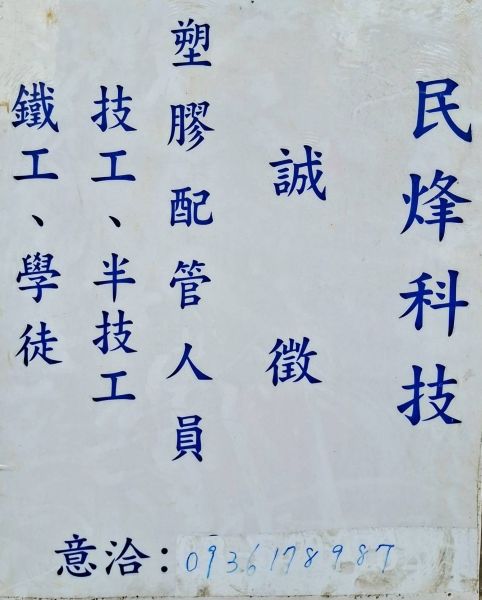 民烽科技
誠徵
塑膠配管人員
技工、半技工
鐵工、學徒
意洽：0936178987